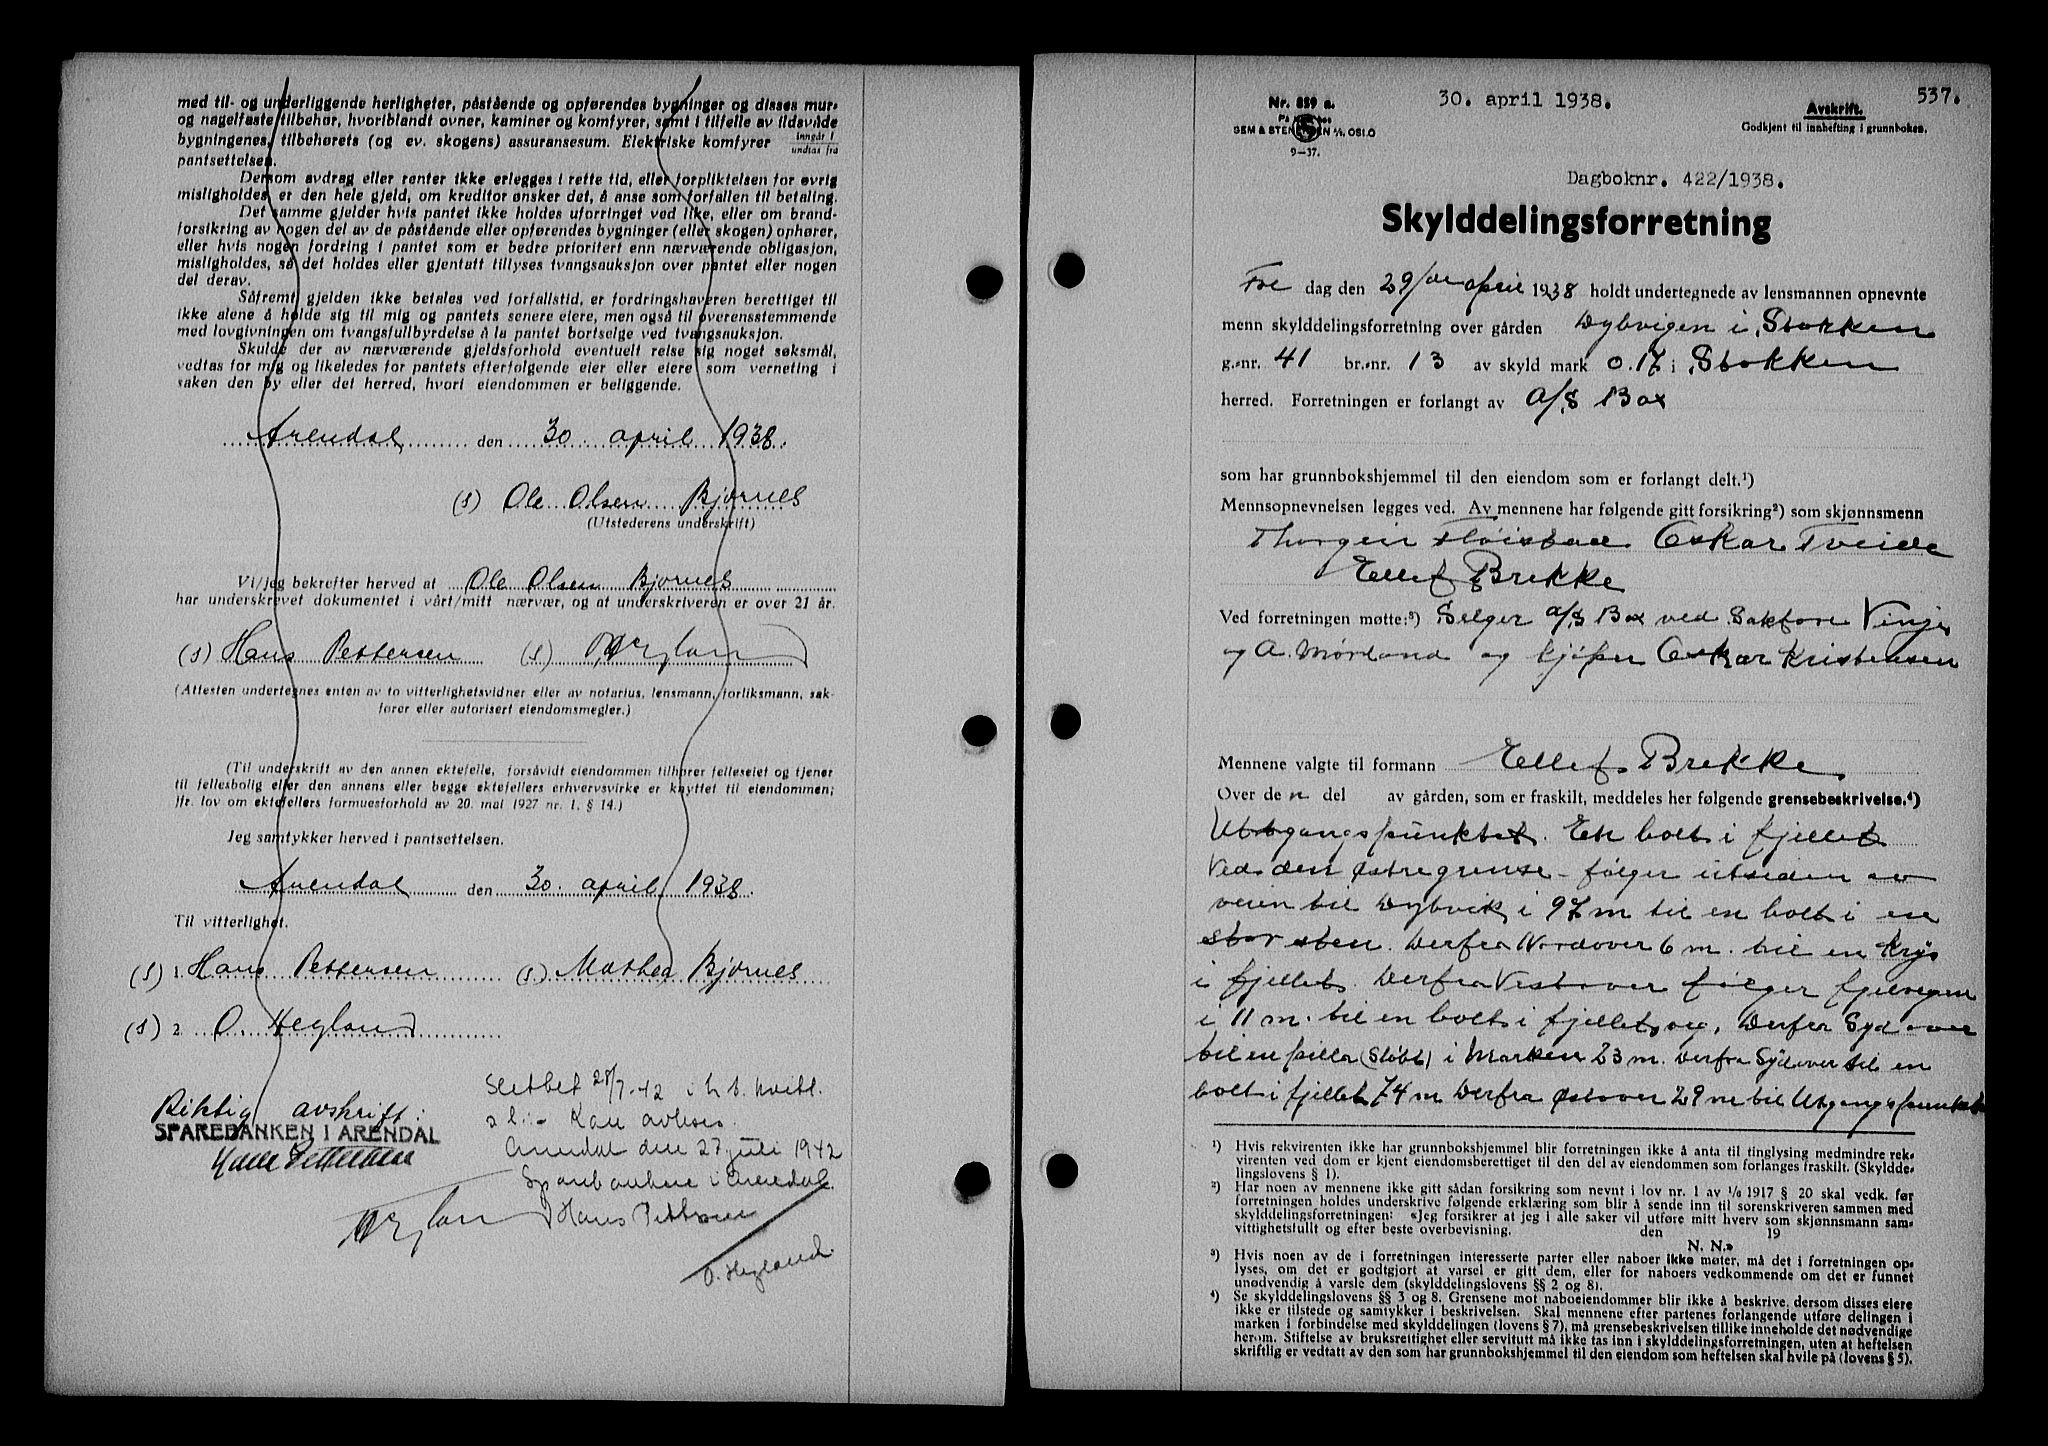 med til- og underliggende herligheter, påstående og opførendes bygninger og disses mur-
og nagelfaste tilbehør, hvoriblandt ovner, kaminer og komfyrer, samt i tilfelle av ildsvåde
bygningenes, tilbehørets (og ev. skogens) assuransesum. Elektriske komfyrer inngår i / undtas fra
pantsettelsen.
Dersom avdrag eller renter ikke erlegges i rette tid, eller forpliktelsen for øvrig
misligholdes, er den hele gjeld, om kreditor ønsker det, å anse som forfallen til betaling.
Det samme gjelder hvis pantet ikke holdes uforringet ved like, eller om brand-
forsikring av nogen del av de påstående eller opførendes bygninger (eller skogen) ophører,
eller hvis nogen fordring i pantet som er bedre prioritert enn nærværende obligasjon,
misligholdes, så det holdes eller gjentatt tillyses tvangsauksjon over pantet eller nogen
del derav.
Såfremt gjelden ikke betales ved forfallstid, er fordringshaveren berettiget til
ikke alene å holde sig til mig og pantets senere eiere, men også til overensstemmende
med lovgivningen om tvangsfullbyrdelse å la pantet bortselge ved tvangsauksjon.
Skulde der av nærværende gjeldsforhold eventuelt reise sig noget søksmål,
vedtas for mig og likeledes for pantets efterfølgende eier eller eiere som verneting i
saken den by eller det herred, hvori eiendommen er beliggende.
Arendal den 30. april 1938.
(s) Ole Olsen Bjornes
(Utstederens underskrift)
Vi/jeg bekrefter herved at Ole Olsen Bjornes
har underskrevet dokumentet i vårt/mitt nærvær, og at underskriveren er over 21 år.
(s) Hans Pettersen (s) O. Heyland
(Attesten undertegnes enten av to vitterlighetsvidner eller av notarius, lensmann, forliksmann, sak-
fører eller autorisert eiendomsmegler.)
(Til underskrift av den annen ektefelle, forsåvidt eiendommen tilhører felleseiet og tjener
til fellesbolig eller den annens eller begge ektefellers erhvervsvirke er knyttet til eiendommen;
jfr. lov om ektefellers formuesforhold av 20. mai 1927 nr. 1, § 14.)
Jeg samtykker herved i pantsettelsen.
Arendal den 30. april 1938.
Til vitterlighet.
(s) 1. Hans Pettersen (s.) Mathea Bjornes
(s) 2. O. Heyland
Slettet 28/7-42 i h. t. kvitt.
Riktig avskrift:
SPAREBANKEN I ARENDAL
Hans Pettersen
s l: - Kan avlyses.
Arendal den 27 juli 1942
Sparebanken i Arendal.
Hans Pettersen
O. Heyland
30. april 1938.
537.
Nr. 859 a.
SEM & STENERSEN A/S, OSLO
9-37.
Avskrift.
Godkjent til innhefting i grunnboken.
Dagboknr. 422/1938.
Skylddelingsforretning
Fre dag den 29/de april 1938 holdt undertegnede av lensmannen opnevnte
menn skylddelingsforretning over gården Dybvigen i Stokken
g.-nr. 41 br.-nr. 13 av skyld mark 0.17 i Stokken
herred. Forretningen er forlangt av A/S Box
som har grunnbokshjemmel til den eiendom som er forlangt delt.¹)
Mennsopnevnelsen legges ved. Av mennene har følgende gitt forsikring²) som skjønnsmenn
Thorgeir Fløistad Oskar Tveide
Ellef Brekke
Ved forretningen møtte:³) Selger A/S Box ved Sakføre Vinje
og A. Mørland og kjøper Oskar Kristensen
Mennene valgte til formann Ellef Brekke
Over den del av gården, som er fraskilt, meddeles her følgende grensebeskrivelse.⁴)
Utgangspunktet. En bolt i fjellet
Ved den østre grense - følger utsiden av
veien til Dybvik i 97 m til en bolt i en
stor sten. Derfra Nordover 6 m. til en Krys
i fjellet. Derfra Vestover følger fjelvegen
i 11 m. til en bolt i fjellet. Derfra Syd over
til en pilla (Støbt) i Marken 23 m. Derfra Sydover til en
bolt i fjellet 74 m Derfra Østover 29 m til Utgangspunktet
¹) Hvis rekvirenten ikke har grunnbokshjemmel blir forretningen ikke å anta til tinglysing medmindre rek-
virenten ved dom er kjent eiendomsberettiget til den del av eiendommen som forlanges fraskilt. (Skyldde-
lingslovens § 1).
²) Har noen av mennene ikke gitt sådan forsikring som nevnt i lov nr. 1 av 1/6 1917 § 20 skal vedk. før
forretningen holdes underskrive følgende erklæring som blir å sende inn til sorenskriveren sammen med
skylddelingsforretningen: «Jeg forsikrer at jeg i alle saker vil utføre mitt hverv som skjønnsmann sam-
vittighetsfullt og efter beste overbevisning. den 19
N. N.»
³) Hvis noen av de i forretningen interesserte parter eller naboer ikke møter, må det i forretningen op-
lyses, om det er godtgjort at varsel er gitt dem, eller for naboers vedkommende om det er funnet
unødvendig å varsle dem (skylddelingslovens §§ 2 og 8).
⁴) Se skylddelingslovens §§ 3 og 8. Grensene mot naboeiendommer blir ikke å beskrive, dersom disses eiere
ikke er tilstede og samtykker i beskrivelsen. Skal mennene efter partenes forlangende utføre delingen i
marken i forbindelse med skylddelingen (lovens § 7), må grensebeskrivelsen tillike inneholde det nødvendige
herom. Stiftelse av bruksrettighet eller servitutt må ikke tas inn i skylddelingsforretningen, uten at heftelsen
skriftlig er vedtatt av den som har grunnbokshjemmel til den eiendom som heftelsen skal hvile på (lovens § 5).